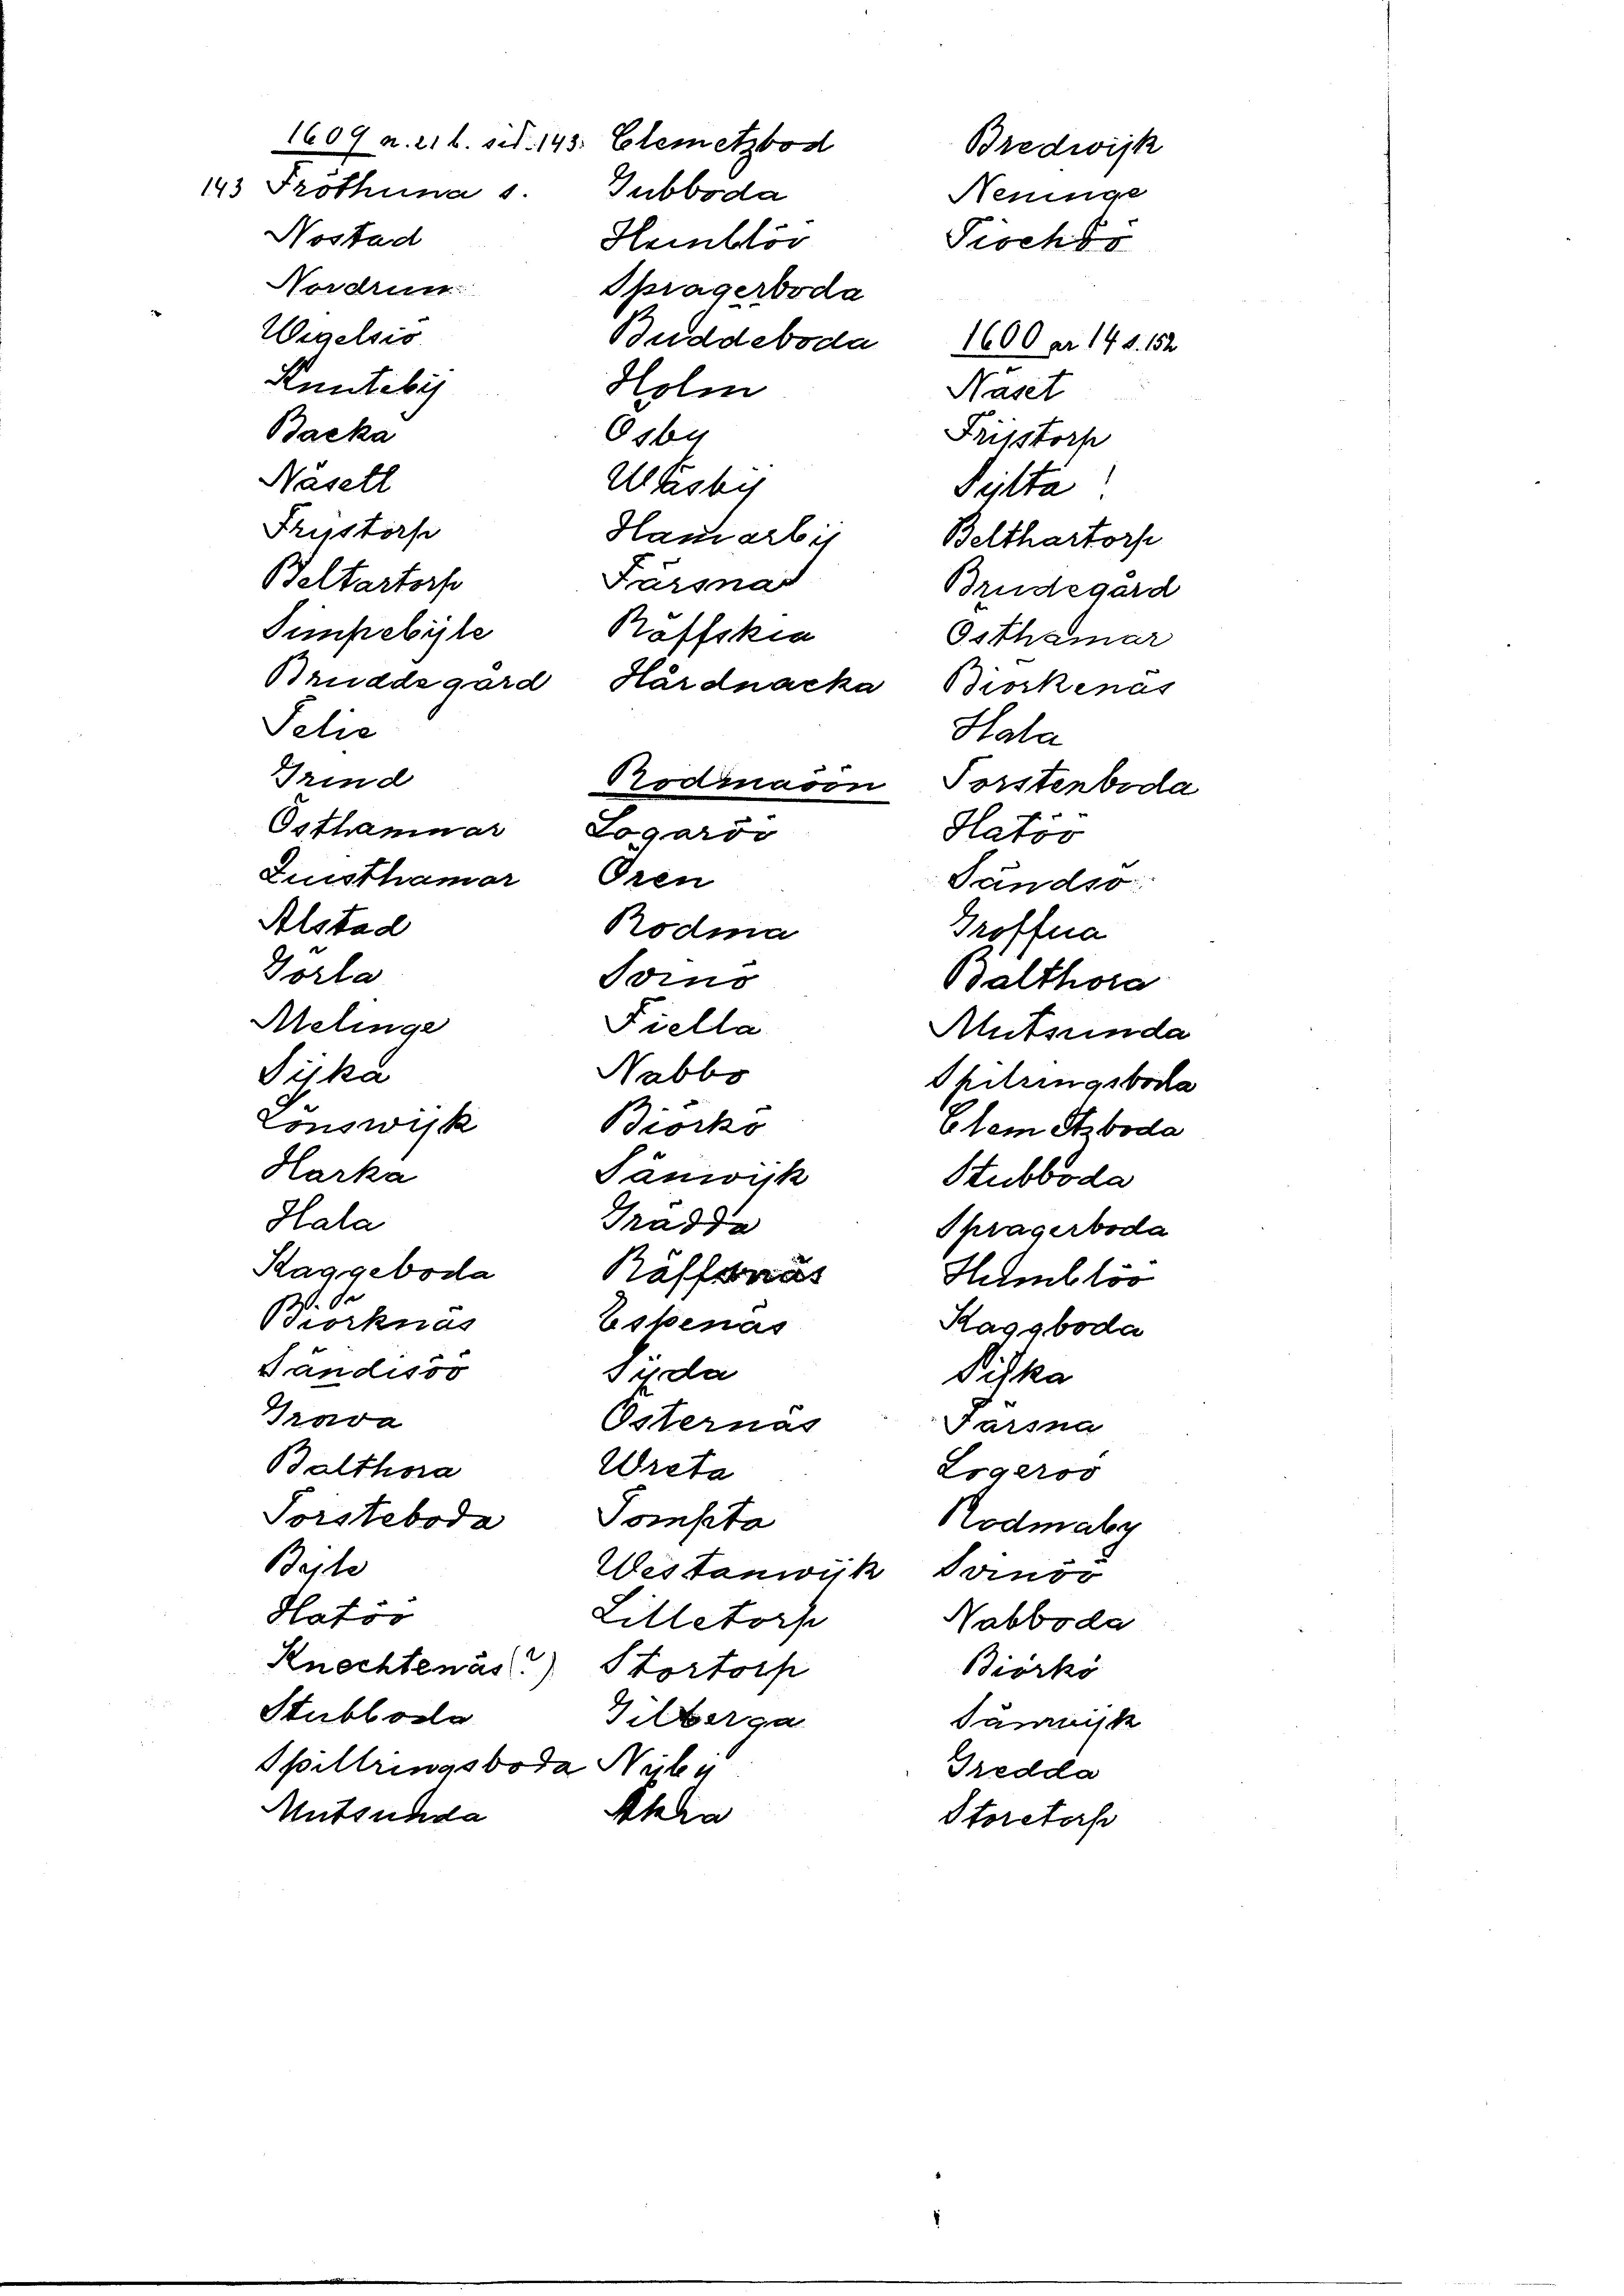 1609 n. 21 b. sid. 143.
143 Fröthuna s.
Nostad
Nordrun
Wegelsiö
Knutebÿ
Backa
Näsett
Frijstorp
Beltartorp
Simpebijle
Bruddegård
Felie
Grind
Östhammar
Luisthamar
Alstad
Görla
Melinge
Sijka
Lönswijk
Harka
Hala
Kaggeboda
Biörknäs
Sandisöö
Grova
Balthora
Torsteboda
Bejle
Hatöö
Knechtenäs(?)
Stubboda
Spillringsboda
Mutsunda
Clemetzbod
Gubboda
Humblöö
Spragerboda
Buddeboda
Holm
Osby
Wäsbÿ
Hamarbÿ
Färsna
Räffskia
Hårdnacka
Rodmaöön
Logaröö
Ören
Rodma
Soinö
Fiella
Nabbo
Biörkö
Sänwijk
Grädda
Räffsnäs
Espenäs
Sijda
Östernäs
Wreta
Tompta
Westanwijk
Lilletorp
Stortorp
Gilberga
Nÿbÿ
Akra
Bredwijk
Neninge
Tiochöö
1600 nr 14 s. 152
Näset
Frijstorp
Sijlta !
Belthartorp
Brudegård
Östhamar
Biörkenäs
Hala
Torstenboda
Hatöö
Sandsö
Groffua
Balthora
Mutsunda
Spilringsboda
Clemetzboda
Stubboda
Spragerboda
Humblöö
Kaggboda
Sijka
Färsna
Logeröö
Rodmaby
Soinöö
Nabboda
Biörkö
Sänwijk
Gredda
Storetorp